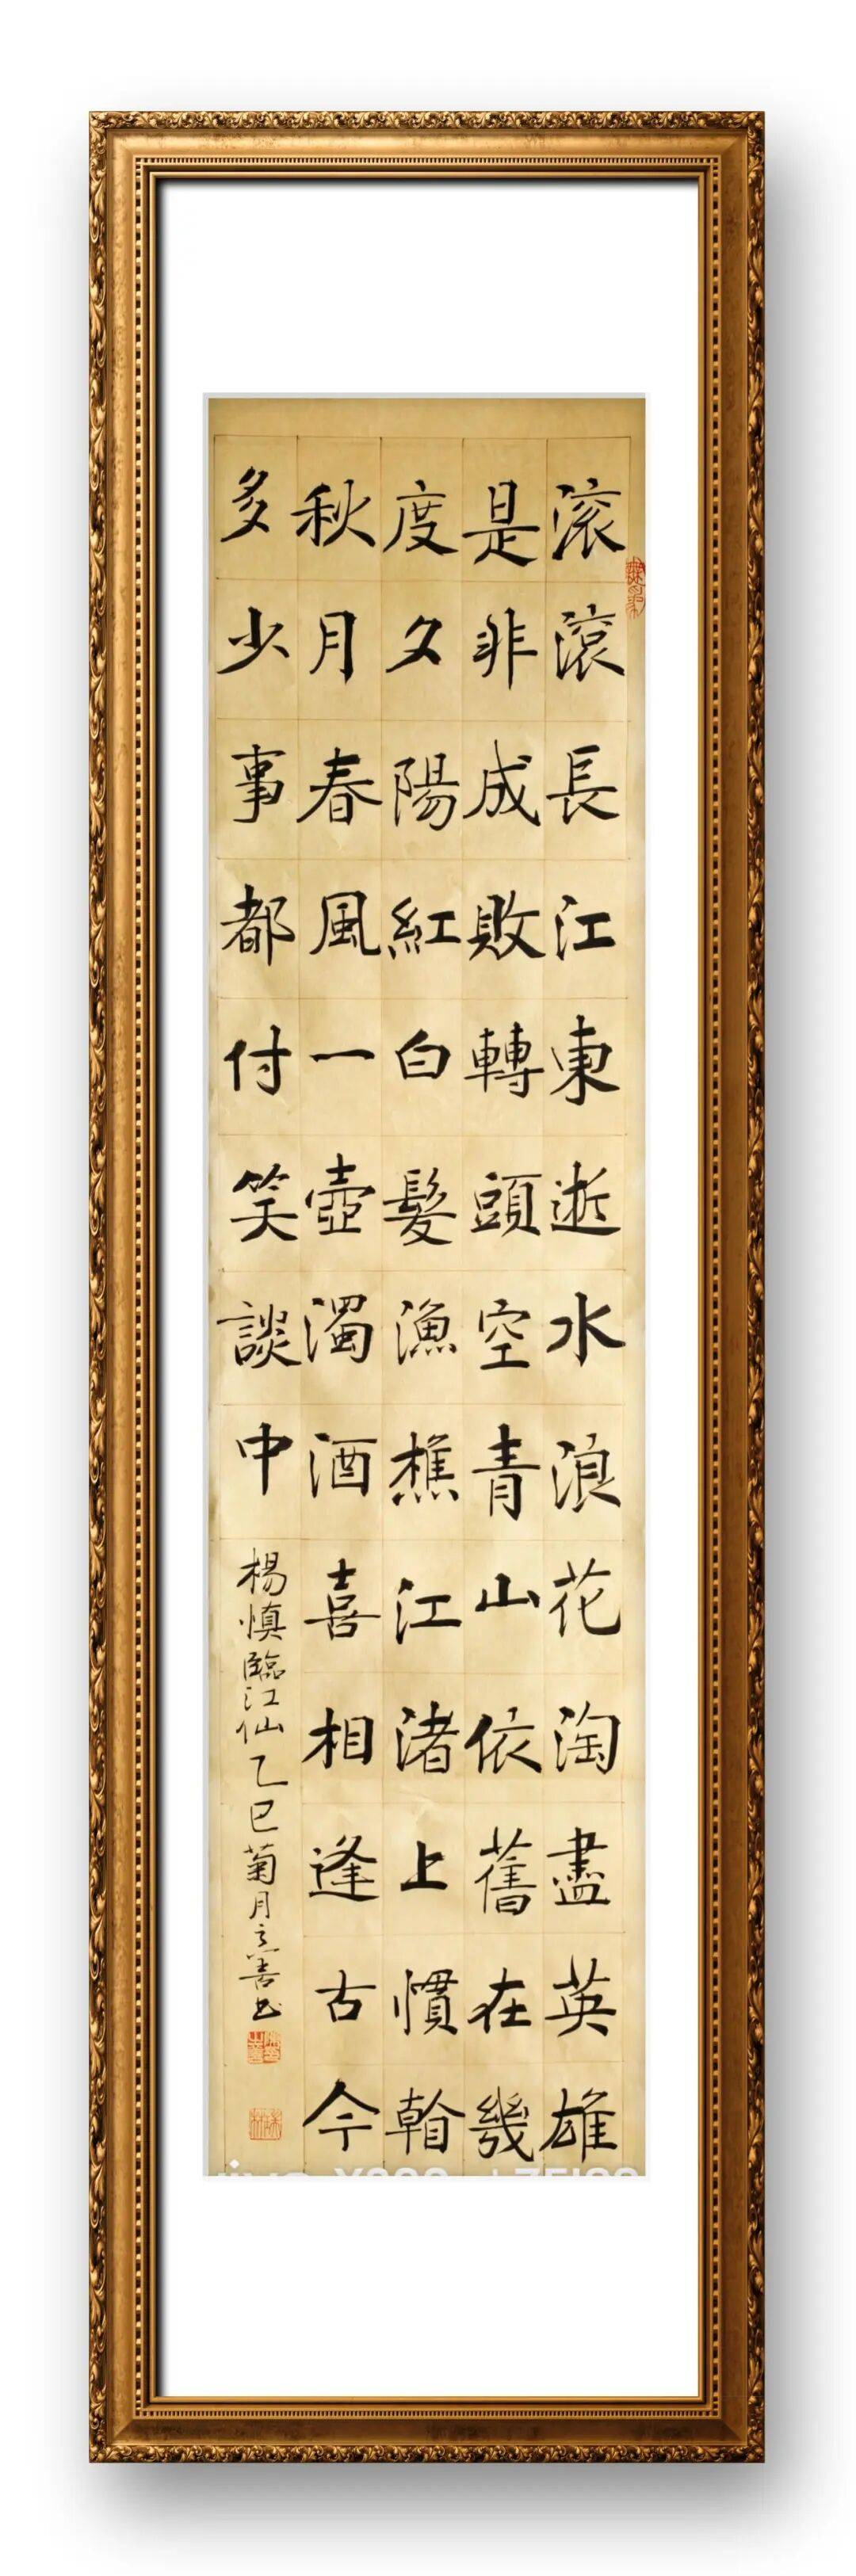 滚滚長江東逝水浪花淘盡英雄
是非成敗轉頭空青山依舊在幾
度夕陽紅白髮漁樵江渚上慣看
秋月春風一壺濁酒喜相逢古今
多少事都付笑談中
楊慎臨江仙乙巳菊月立善书